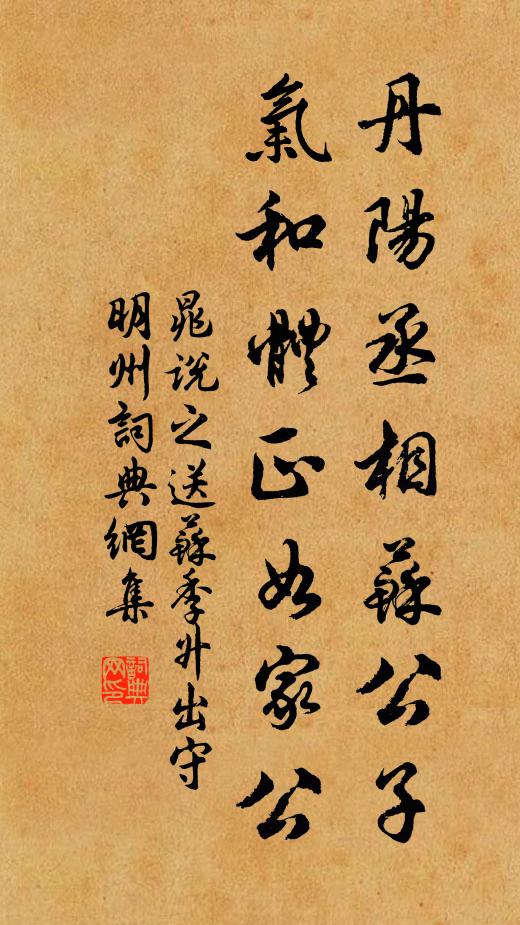 丹陽丞相蘇公子
氣和體正如家公
晁說之送蘇季升出守
明州詞典網集
詞典网印